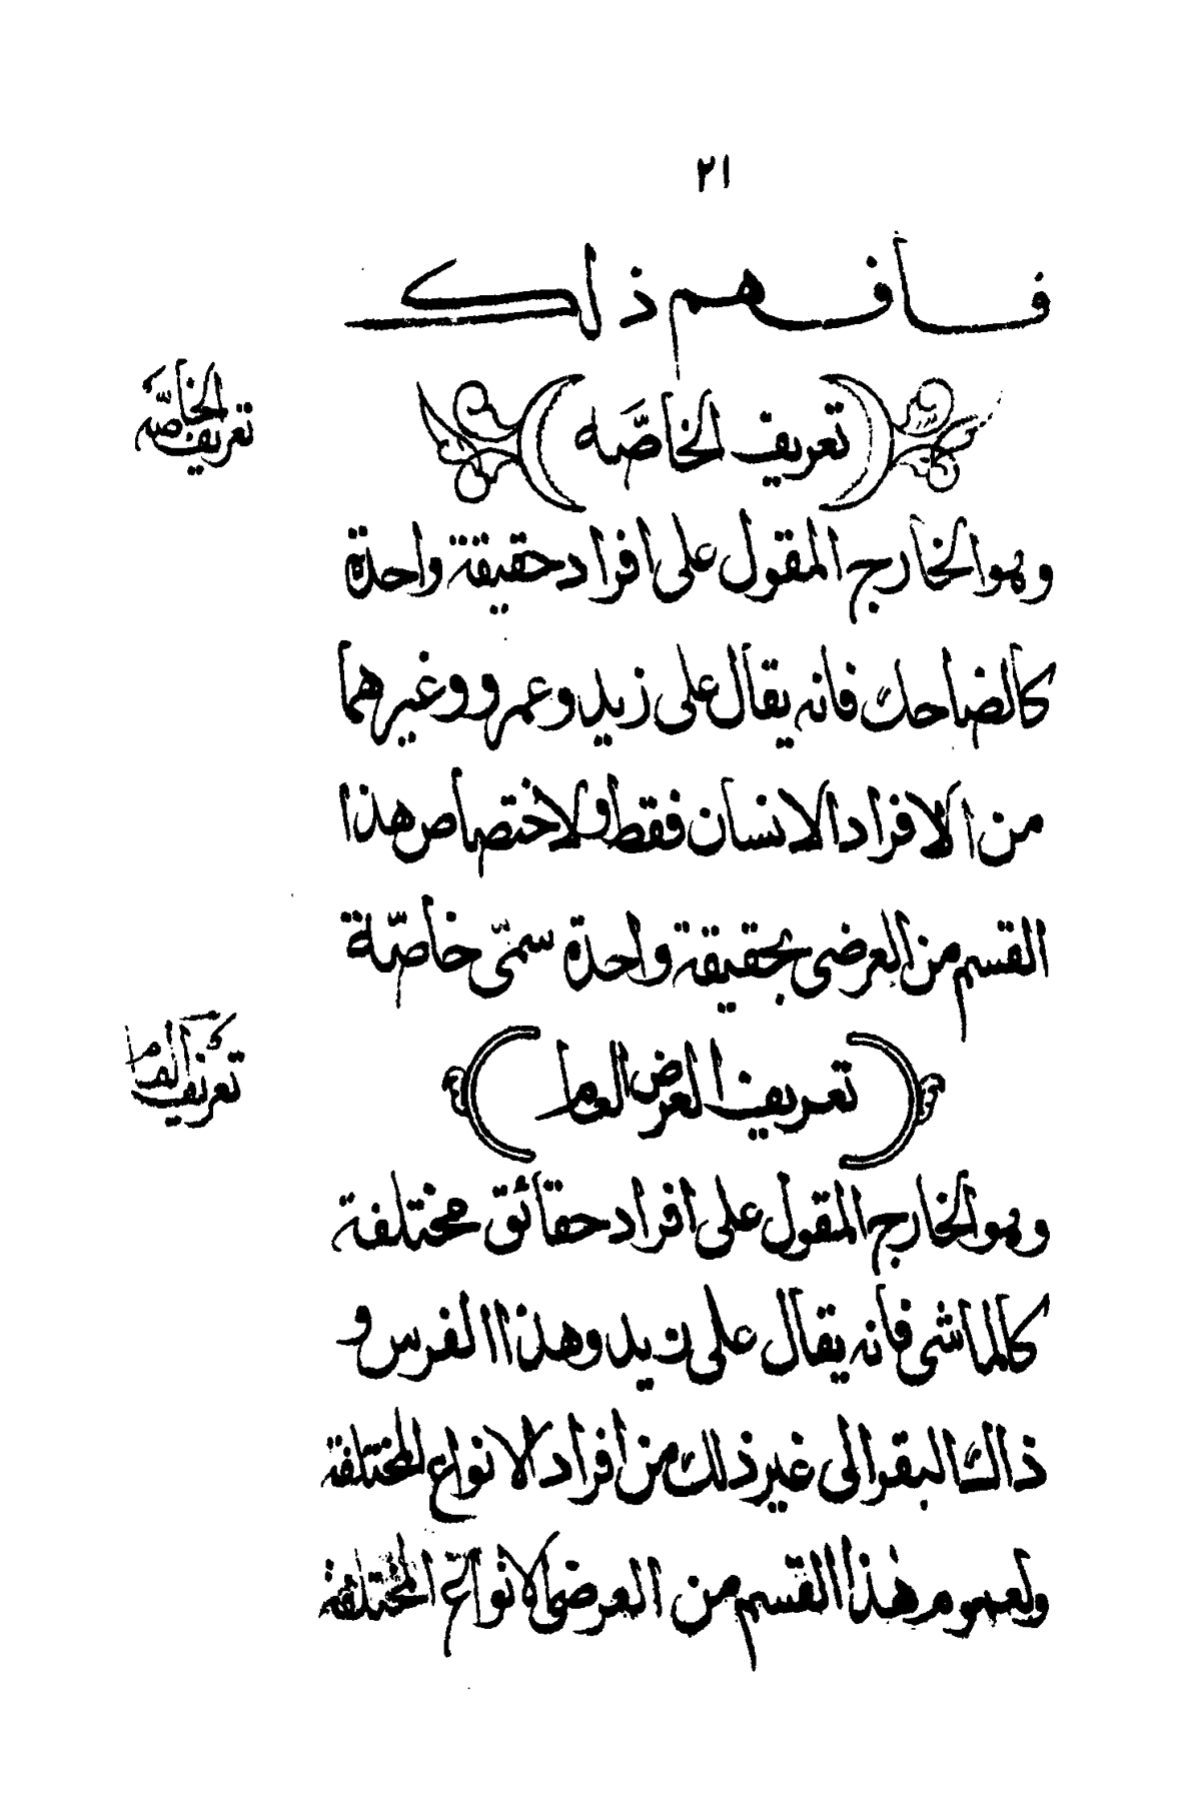 ٢١
فافهم ذلك
تعريف الخاصّه
(تعريف الخاصّه)
وهو الخارج المقول على افراد حقيقة واحدة
كالضاحك فانه يقال على زيد وعمرو وغيرهما
من الافراد الانسان فقط ولاختصاص هذا
القسم من العرضى بحقيقة واحدة سمّى خاصّة
تعريف العام
(تعريف العرض العام)
وهو الخارج المقول على افراد حقائق مختلفة
كالماشى فانه يقال على زيد وهذا الفرس و
ذاك البقر الى غير ذلك من افراد الانواع المختلفة
ولعموم هذا القسم من العرضى الانواع المختلفة